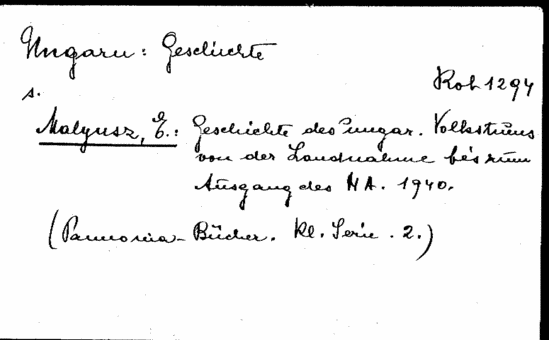 Ungarn: Geschichte
Roh 1294
s.
Malyusz, E.: Geschichte des ungar. Volkstums
von der Landnahme bis zum
Ausgang des MA. 1940.
(Pannonia-Bücher. Kl. Serie. 2.)